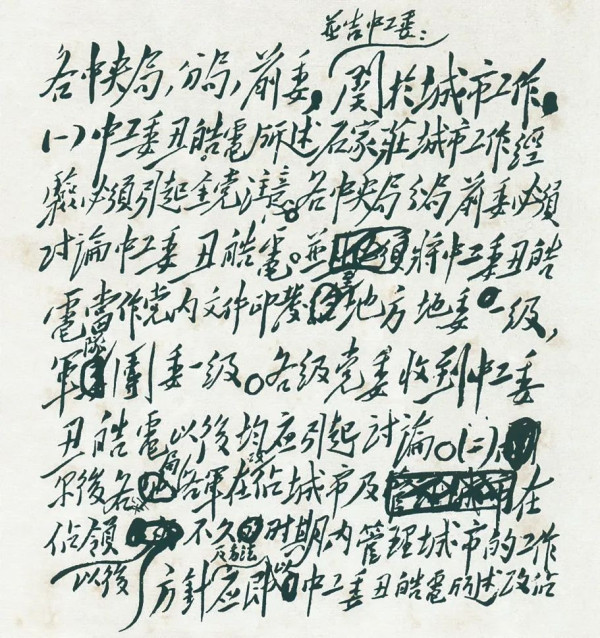 並告中工委：
各中央局，分局，前委。關於城市工作。
(一)中工委丑皓電所述石家莊城市工作經
驗必須引起全党注意。各中央局分局前委必須
討論中工委丑皓電。並須將中工委丑皓
電當作党内文件印發至地方地委一級，
軍隊團委一級。各級党委收到中工委
丑皓電以後均應引起討論。(二)
尔後各局各軍在攻佔城市及在
佔領以後不久時期内管理城市的工作
方針及方法應即以中工委丑皓電所述攻佔